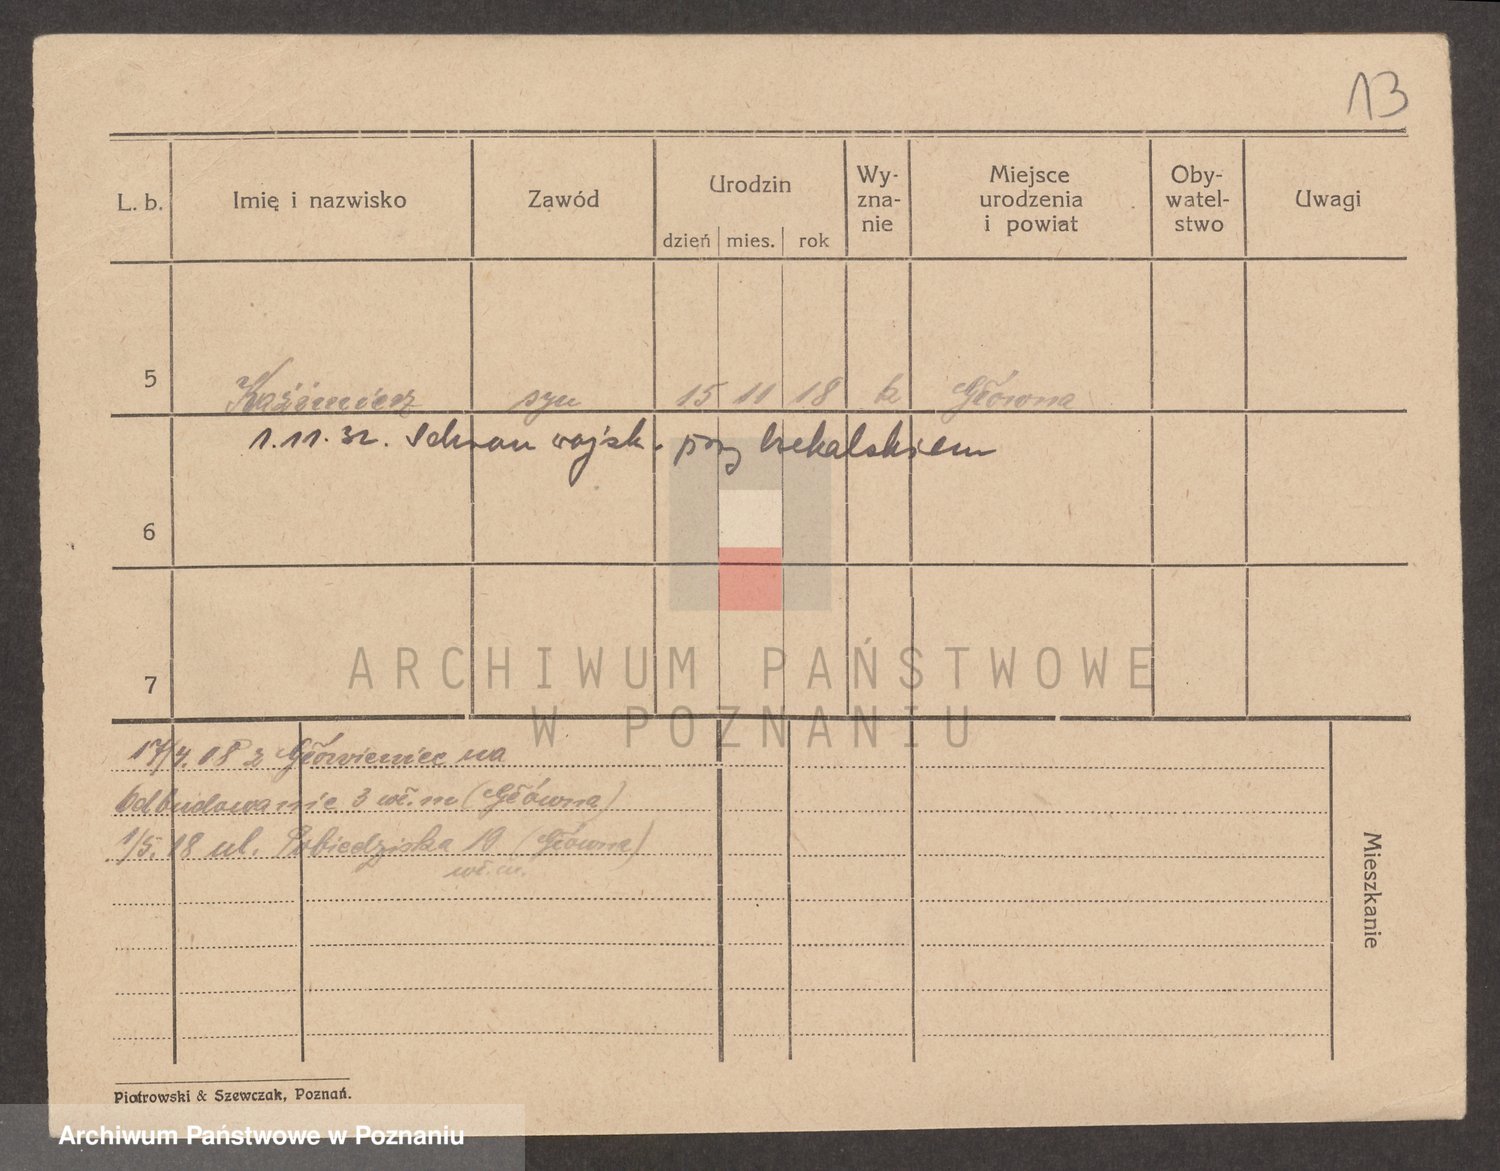 13
L. b. Imię i nazwisko Zawód Urodzin dzień mies. rok Wy-zna-nie Miejsce urodzenia i powiat Oby-watel-stwo Uwagi
5 Kaźimierz syn 15 11 18 k Główna
1.11.32. Schron wojsk. przy
6
7
ARCHIWUM PAŃSTWOWE
W POZNANIU
17/4.18 z Główieniec na
Odbudowanie 3 wł.m (Główna)
1/5.18 ul. Pobiedziska 10 (Główna)
wł.m.
Mieszkanie
Piotrowski & Szewczak, Poznań.
Archiwum Państwowe w Poznaniu